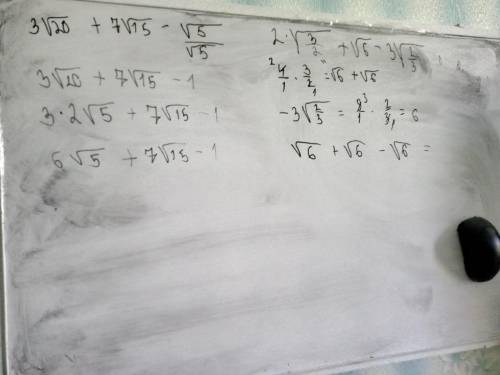 3√20 + 7√15 - √5/√5
3√20 + 7√15 - 1
3·2√5 + 7√15 - 1
6√5 + 7√15 - 1
2·√3/2 + √6 - 3√2/3
4/1 · 3/2 = √6 + √6
-3√2/3 = 9/1 · 2/3 = 6
√6 + √6 - √6 =